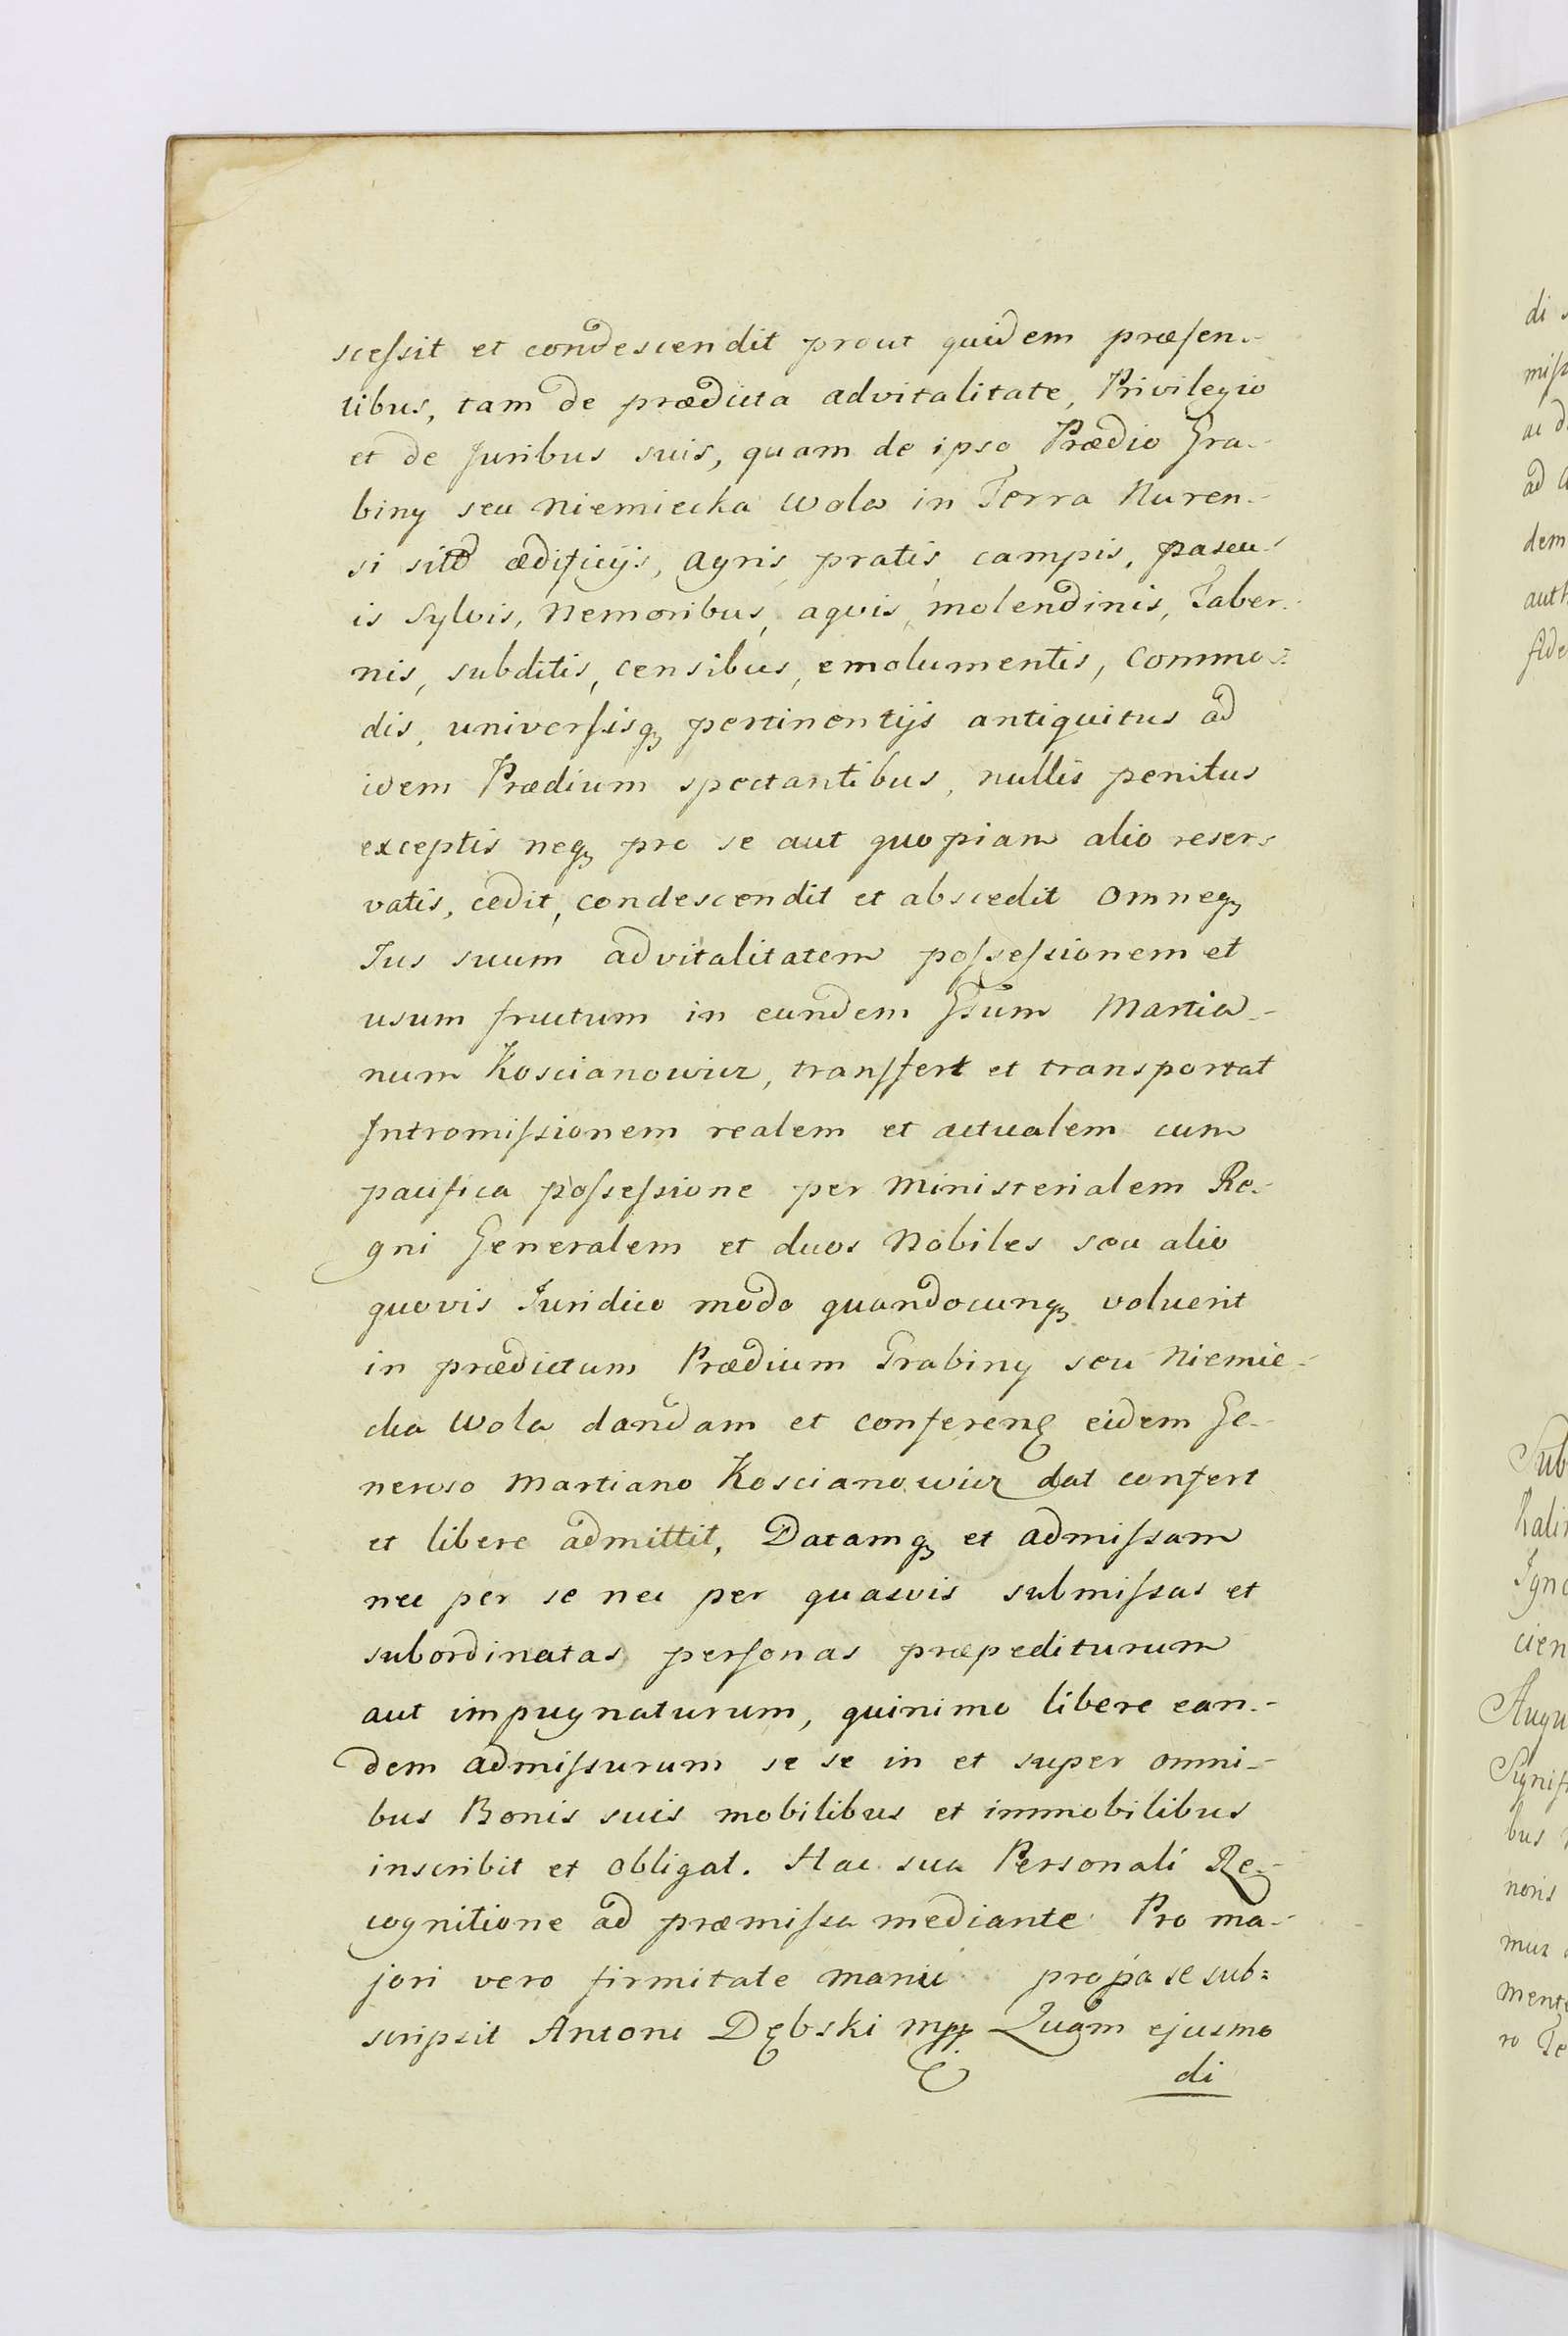 scessit et condescendit prout quidem præsen-
tibus, tam de prædicta advitalitate, Privilegio
et de Juribus suis, quam de ipso Prædio Gra-
biny seu Niemiecka Wola in Terra Nuren-
si sito ædificijs, Agris pratis, campis, pascu-
is Sylvis, Nemoribus, aqvis, molendinis, Taber-
nis, subditis, censibus, emolumentis, Commo-
dis, universisq pertinentijs antiquitus ad
idem Prædium spectantibus, nullis penitus
exceptis neq pro se aut quopiam alio reser-
vatis, cedit, condescendit et abscedit omneq
Jus suum advitalitatem possessionem et
usum fructum in eundem Gsum Martia-
num Koscianowicz, transfert et transportat
Intromissionem realem et actualem cum
pacifica possessione per Ministerialem Re-
gni Generalem et duos Nobiles seu alio
quovis Juridico modo quandocunq voluerit
in prædictum Prædium Grabiny seu Niemie-
cka Wola dandam et conferen eidem Ge-
neroso Martiano Koscianowicz dat confert
et libere admittit, Datamq et admissam
nec per se nec per quasvis submissas et
subordinatas personas præpediturum
aut impugnaturum, quinimo libere ean-
dem admissurum se se in et super omni-
bus Bonis suis mobilibus et immobilibus
inscribit et obligat. Hac sua Personali Re-
cognitione ad præmissa mediante Pro ma-
jori vero firmitate manu propa se sub=
scripsit Antoni Dębski mpp Quam ejusmo
di
di
ad
dem
auth
fide
Sub
Kali
Igna
cien
Augu
Signif
bus
noris
mus
mente
ro Te